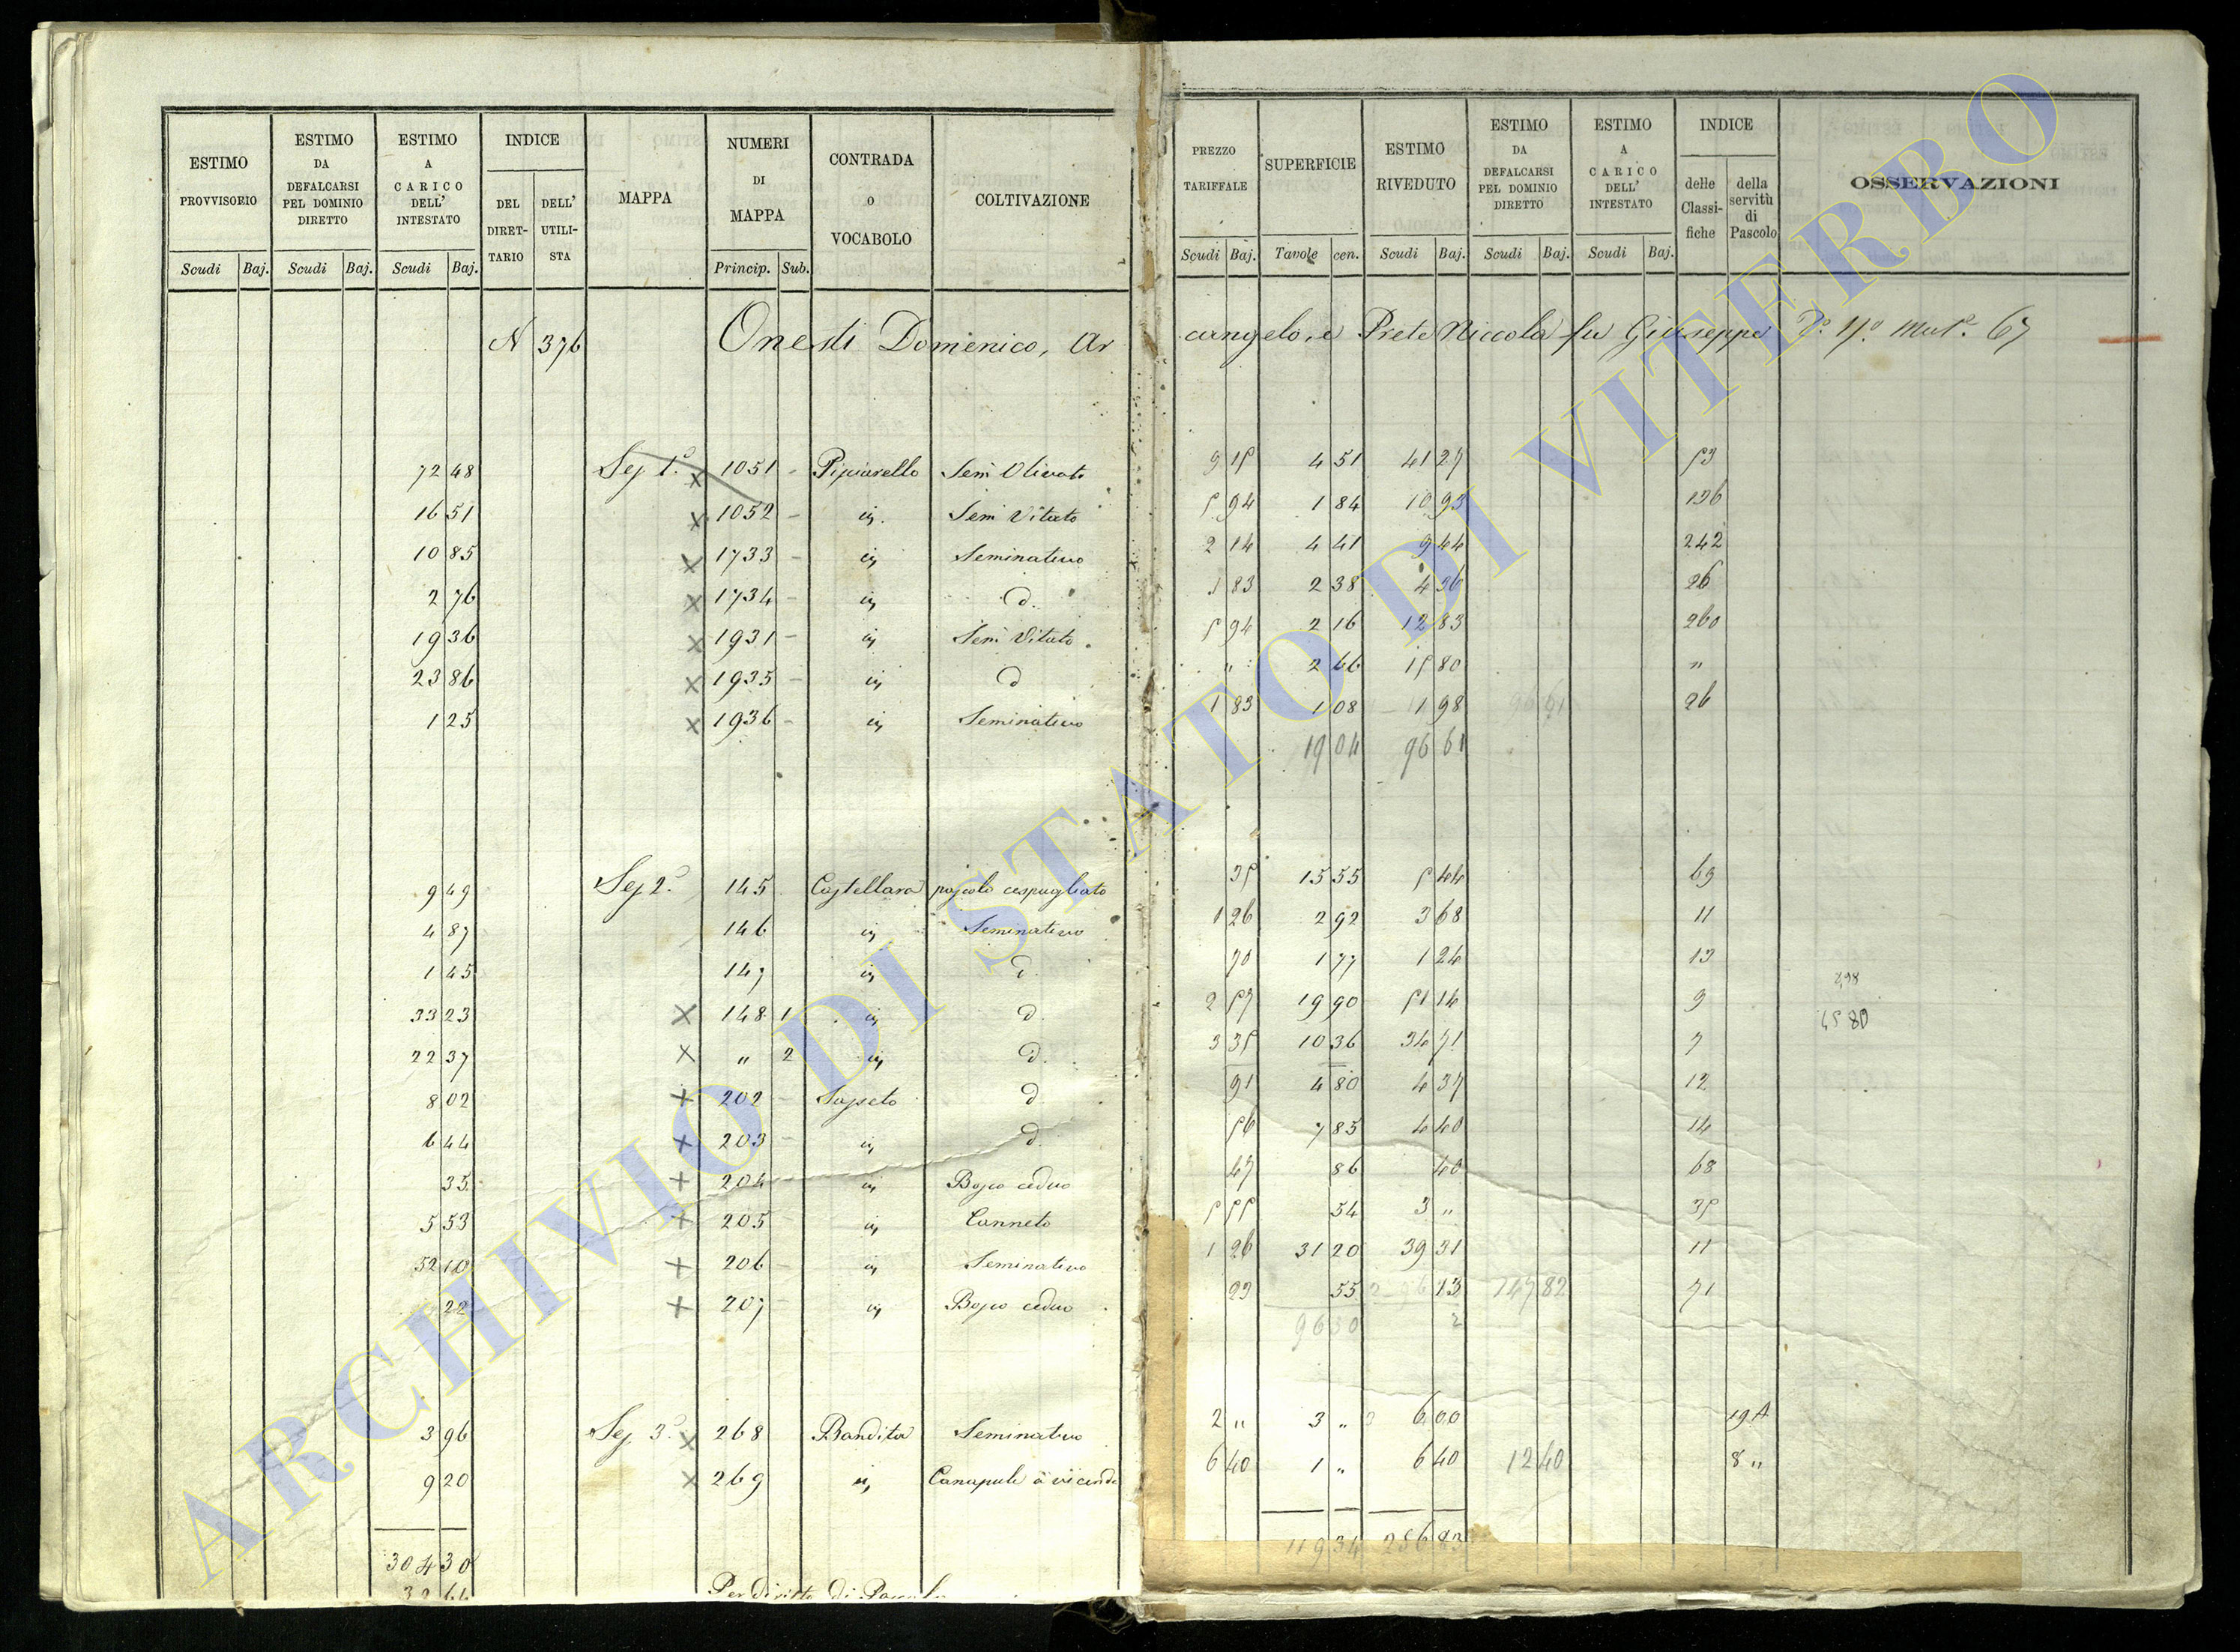 ESTIMO PROVVISORIO | ESTIMO DA DEFALCARSI PEL DOMINIO DIRETTO | ESTIMO A CARICO DELL' INTESTATO | INDICE DEL DIRETTARIO | DELL' UTILISTA | MAPPA | NUMERI DI MAPPA | CONTRADA O VOCABOLO | COLTIVAZIONE | PREZZO TARIFFALE | SUPERFICIE | ESTIMO RIVEDUTO | ESTIMO DA DEFALCARSI PEL DOMINIO DIRETTO | ESTIMO A CARICO DELL' INTESTATO | INDICE delle Classifiche | della servitù di Pascolo | OSSERVAZIONI
Scudi Baj. Scudi Baj. Scudi Baj. Princip. Sub. Scudi Baj. Tavole cen. Scudi Baj. Scudi Baj. Scudi Baj.
N 376 Onesti Domenico, Arcangelo, e Prete Niccola fu Giuseppe 67
72 48 Sez 1ª x 1051 - Sem Olivato 9 15 4 51 41 27 53
16 51 x 1052 - in Sem Vitato 5 94 1 84 10 93 136
10 85 x 1733 - in Seminativo 2 14 4 41 9 44 242
2 76 x 1734 - in d. 1 83 2 38 4 36 26
19 36 x 1931 - in Sem Vitato 5 94 2 16 12 83 260
23 86 x 1935 - in d " 2 66 15 80 "
1 25 x 1936 - in Seminativo 1 83 1 08 1 98 26 96 61
19 04 96 61
9 49 Sez 2ª 145 Castellara pascolo cespugliato 35 15 55 5 44 69
4 87 146 in Seminativo 1 26 2 92 3 68 11
1 45 147 in d. 70 1 77 1 24 13
33 23 x 148 1 in d. 2 57 19 90 51 14 9
22 37 x " 2 in d. 3 35 10 36 34 71 7
8 02 + 202 - d 91 4 80 4 37 12
6 44 + 203 - in d. 56 7 85 4 40 14
35 + 204 in Bosco ceduo 47 86 40 68
5 53 + 205 - in Canneto 5 55 54 3 " 35
52 10 + 206 - in Seminativo 1 26 31 20 39 31 11
22 + 207 - in Bosco ceduo 23 55 13 147 82 71
96 30
3 96 Sez 3ª x 268 Bandita Seminativo 2 " 3 " 6 00 19 A
9 20 x 269 in Canapule a vicenda 6 40 1 " 6 40 12 40 8 "
304 30 119 34 256 83
Per diritto di Pascolo
ARCHIVIO DI STATO DI VITERBO